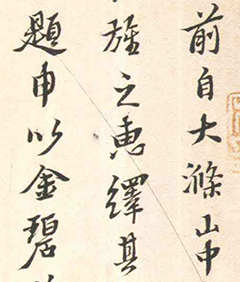 前自大滌山中
旌之惠繹其
題申以金碧